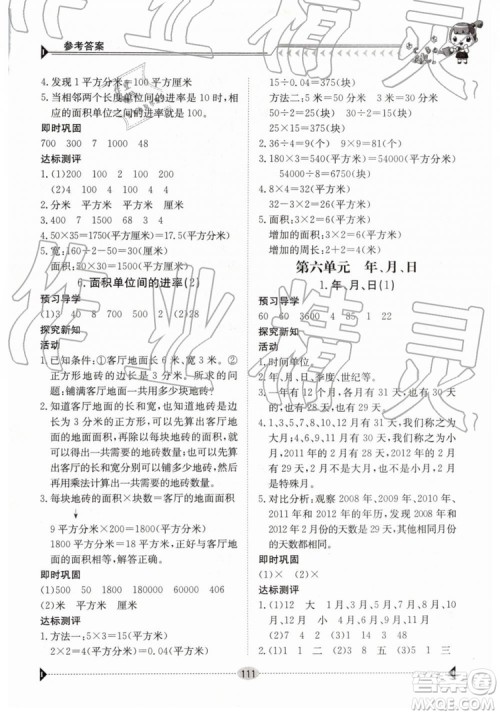 参考答案
4.发现1平方分米=100平方厘米
5.当相邻两个长度单位间的进率是10时，
相应的面积单位之间的进率就是100。
即时巩固
700 300 7 1000 48
达标测评
1.(1)18 (2)4 100
2.分米 平方米 平方分米
4.50×35=1750(平方分米)=17.5(平方米)
5.宽:160÷2-50=30(米)
面积:50×30=1500(平方米)
6.面积单位间的进率(2)
预习导学
(1)3 40 8 9 (2)1500 15
探究新知
活动
1.已知条件:①客厅地面长6米,宽3米。②
正方形地砖的边长是3分米。要解决的问
题:铺满客厅地面一共用多少块地砖?
2.知道客厅地面的长和宽,可以先算出客厅
地面的面积;知道每块地砖是边长为3分
米的正方形,可以先算出每块地砖的面
积;也可以先求出客厅的长需要的地砖块
数和客厅的宽需要的地砖块数,然后求
出一共需要的地砖的块数。
3.每块地砖的面积×块数=客厅地面的面积
↓ ↓ ↓
9平方分米×200=1800(平方分米)
1800平方分米=18平方米,与客厅地
面的面积相等,解答正确。
即时巩固
(1)500 400 1800 40000 60000
(2)米 平方米 平方分米
达标测评
1.方法一:5×3=15(平方米)
2×2=4(平方分米)=0.04(平方米)
15÷0.04=375(块)
方法二:5米=50分米 3米=30分米
50÷2=25(块) 30÷2=15(块)
25×15=375(块)
2.36÷4=9(个) 9×9=81(平方分米)
3.180×3=540(平方米)=54000(平方分米)
54000÷8=6750(块)
4.8×4=32(平方米) 32×2=64(平方米)
5.面积:30×20=600(平方米)
增加的长:30÷3=10(米)
增加的宽:2×2=4(米)
第六单元 年、月、日
1.年、月、日(1)
预习导学
60 60 3600 4 85 1 22
探究新知
活动
1.时间单位。
2.年、月、日、季度、世纪等。
3.12个月;有的月份有31天,有的月份有30
天,2月有28天或29天。
4.1月、3月、5月、7月、8月、10月、12月,每
月有31天。
6.1、3、5、7、8、10、12月都是31天,它们叫作
大月;4、6、9、11月都是30天,它们叫作
小月;2月是28天或29天。
7.对比分析:观察2008年、2009年、2010年、
2011年和2012年的月历发现,2008年和
2012年2月有29天,其他年份的2月都
是28天。除2月份外,其他相同月份
的天数都相同。
即时巩固
(1)× (2)×
达标测评
1.(1)12 大 1月、3月、5月、7月、8月、
10月、12月 小 4月、6月、9月、11月
(2)4 5 1 (3)31 30
2.(1)五 三 (2)五 二 (3)三
111